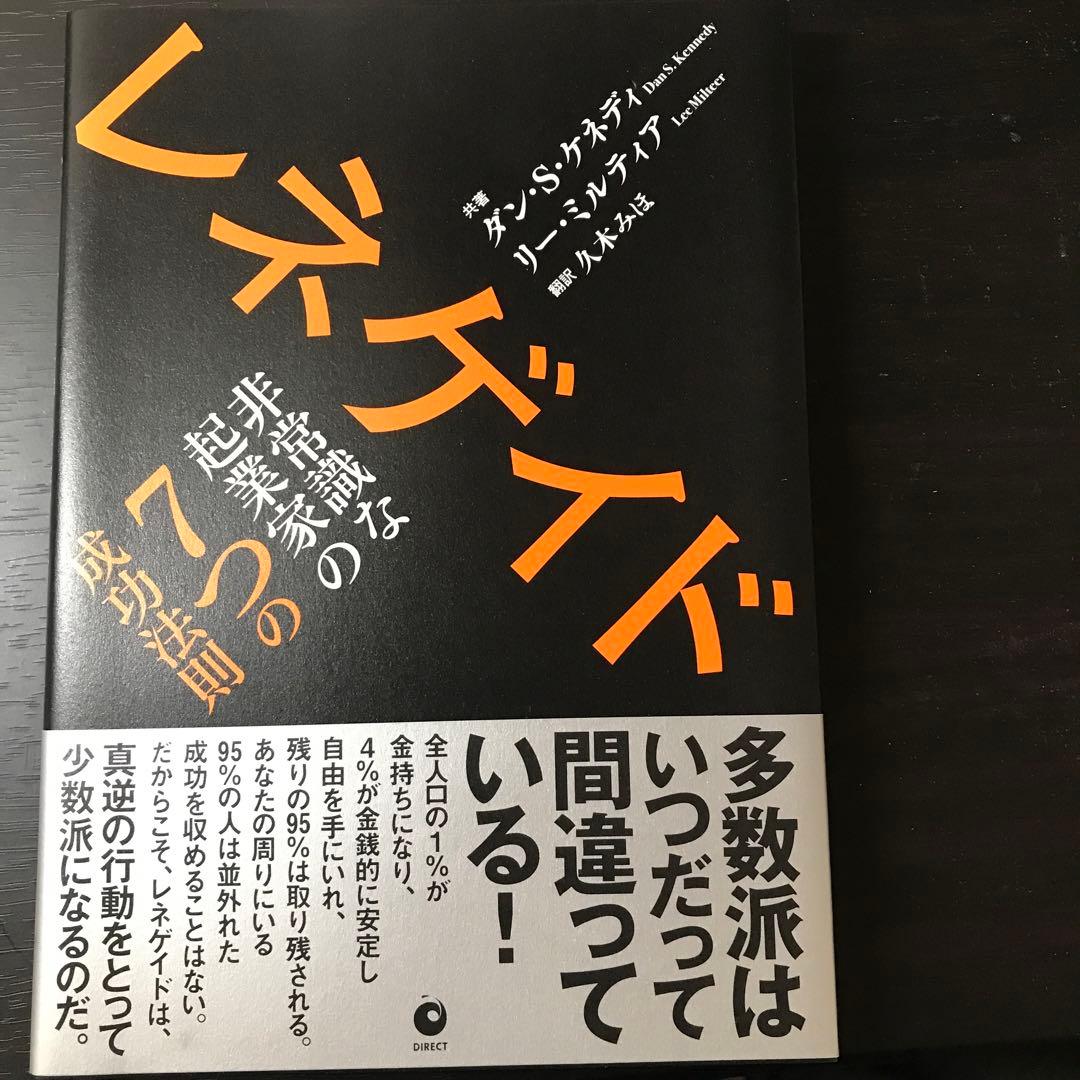 レネゲイド
共著
ダン・S・ケネディ Dan S. Kennedy
リー・ミルティア Lee Milteer
翻訳 久木みほ
非常識な
起業家の
7つの
成功法則
多数派は
いつだって
間違って
いる!
全人口の1%が
金持ちになり、
4%が金銭的に安定し
自由を手にいれ、
残りの95%は取り残される。
あなたの周りにいる
95%の人は並外れた
成功を収めることはない。
だからこそ、レネゲイドは、
真逆の行動をとって
少数派になるのだ。
DIRECT